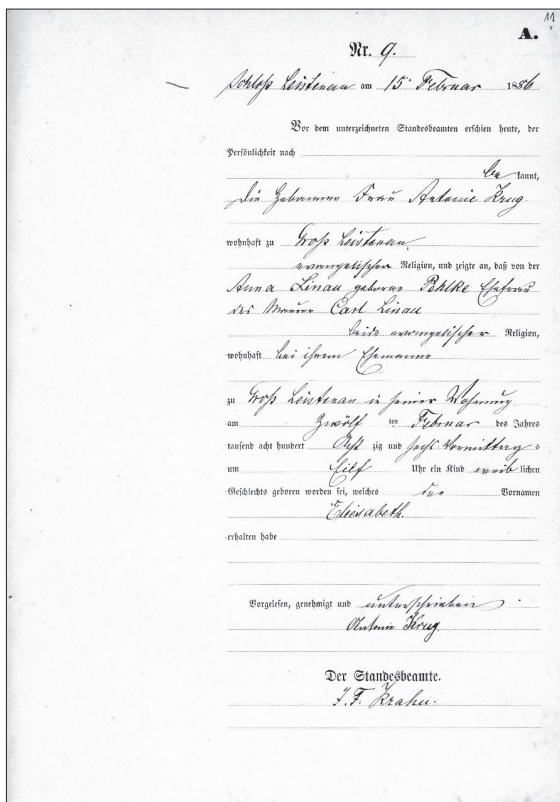 11
A.
Nr. 9.
Schloß Leistenau am 15. Februar 1886
Vor dem unterzeichneten Standesbeamten erschien heute, der
Persönlichkeit nach
be kannt,
die Hebamme Frau Antonie Krug
wohnhaft zu Groß Leistenau,
evangelischer Religion, und zeigte an, daß von der
Anna Linau geborne Pehlke Ehefrau
des Maurer Carl Linau
beide evangelischer Religion,
wohnhaft bei ihrem Ehemanne
zu Groß Leistenau in seiner Wohnung
am Zwölf ten Februar des Jahres
tausend acht hundert Acht zig und sechs Vormittag s
um Eilf Uhr ein Kind weib lichen
Geschlechts geboren worden sei, welches den Vornamen
Elisabeth.
erhalten habe
Vorgelesen, genehmigt und unterschrieben
Antonie Krug.
Der Standesbeamte.
J. F. Krahn.